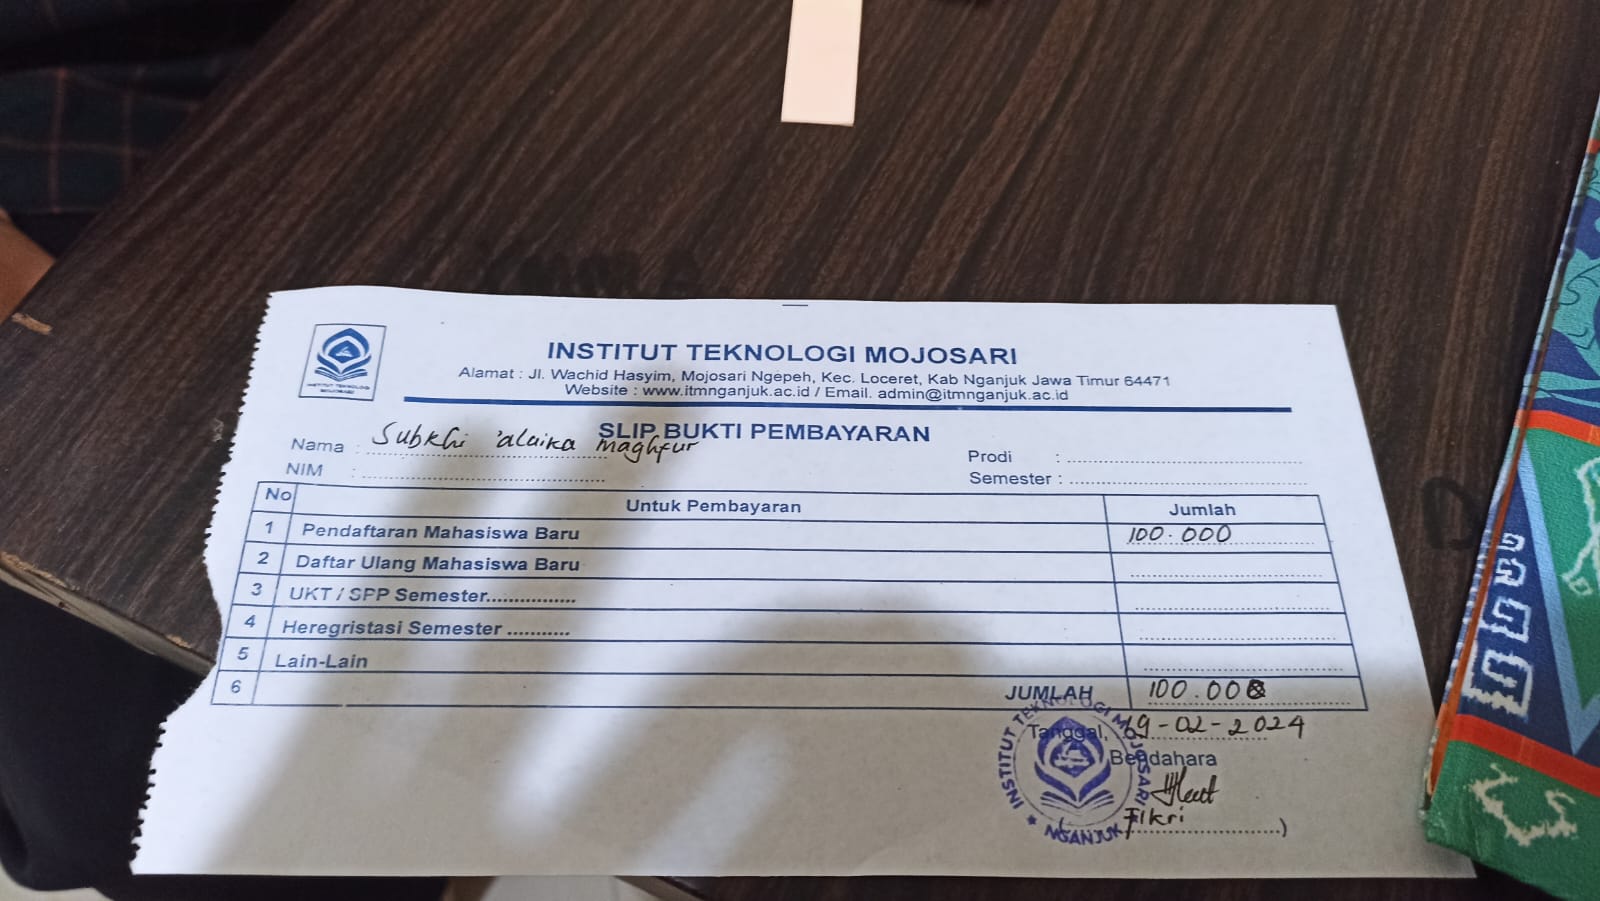 INSTITUT TEKNOLOGI
MOJOSARI
INSTITUT TEKNOLOGI MOJOSARI
Alamat : Jl. Wachid Hasyim, Mojosari Ngepeh, Kec. Loceret, Kab Nganjuk Jawa Timur 64471
Website : www.itmnganjuk.ac.id / Email. admin@itmnganjuk.ac.id
SLIP BUKTI PEMBAYARAN
Nama : Subkhi 'alaika maghfur
Prodi :
NIM :
Semester :
No Untuk Pembayaran Jumlah
1 Pendaftaran Mahasiswa Baru 100.000
2 Daftar Ulang Mahasiswa Baru
3 UKT / SPP Semester................
4 Heregristasi Semester ...........
5 Lain-Lain
6 JUMLAH 100.000
Tanggal, 19-02-2024
Bendahara
(Fikri)
INSTITUT TEKNOLOGI MOJOSARI
NGANJUK